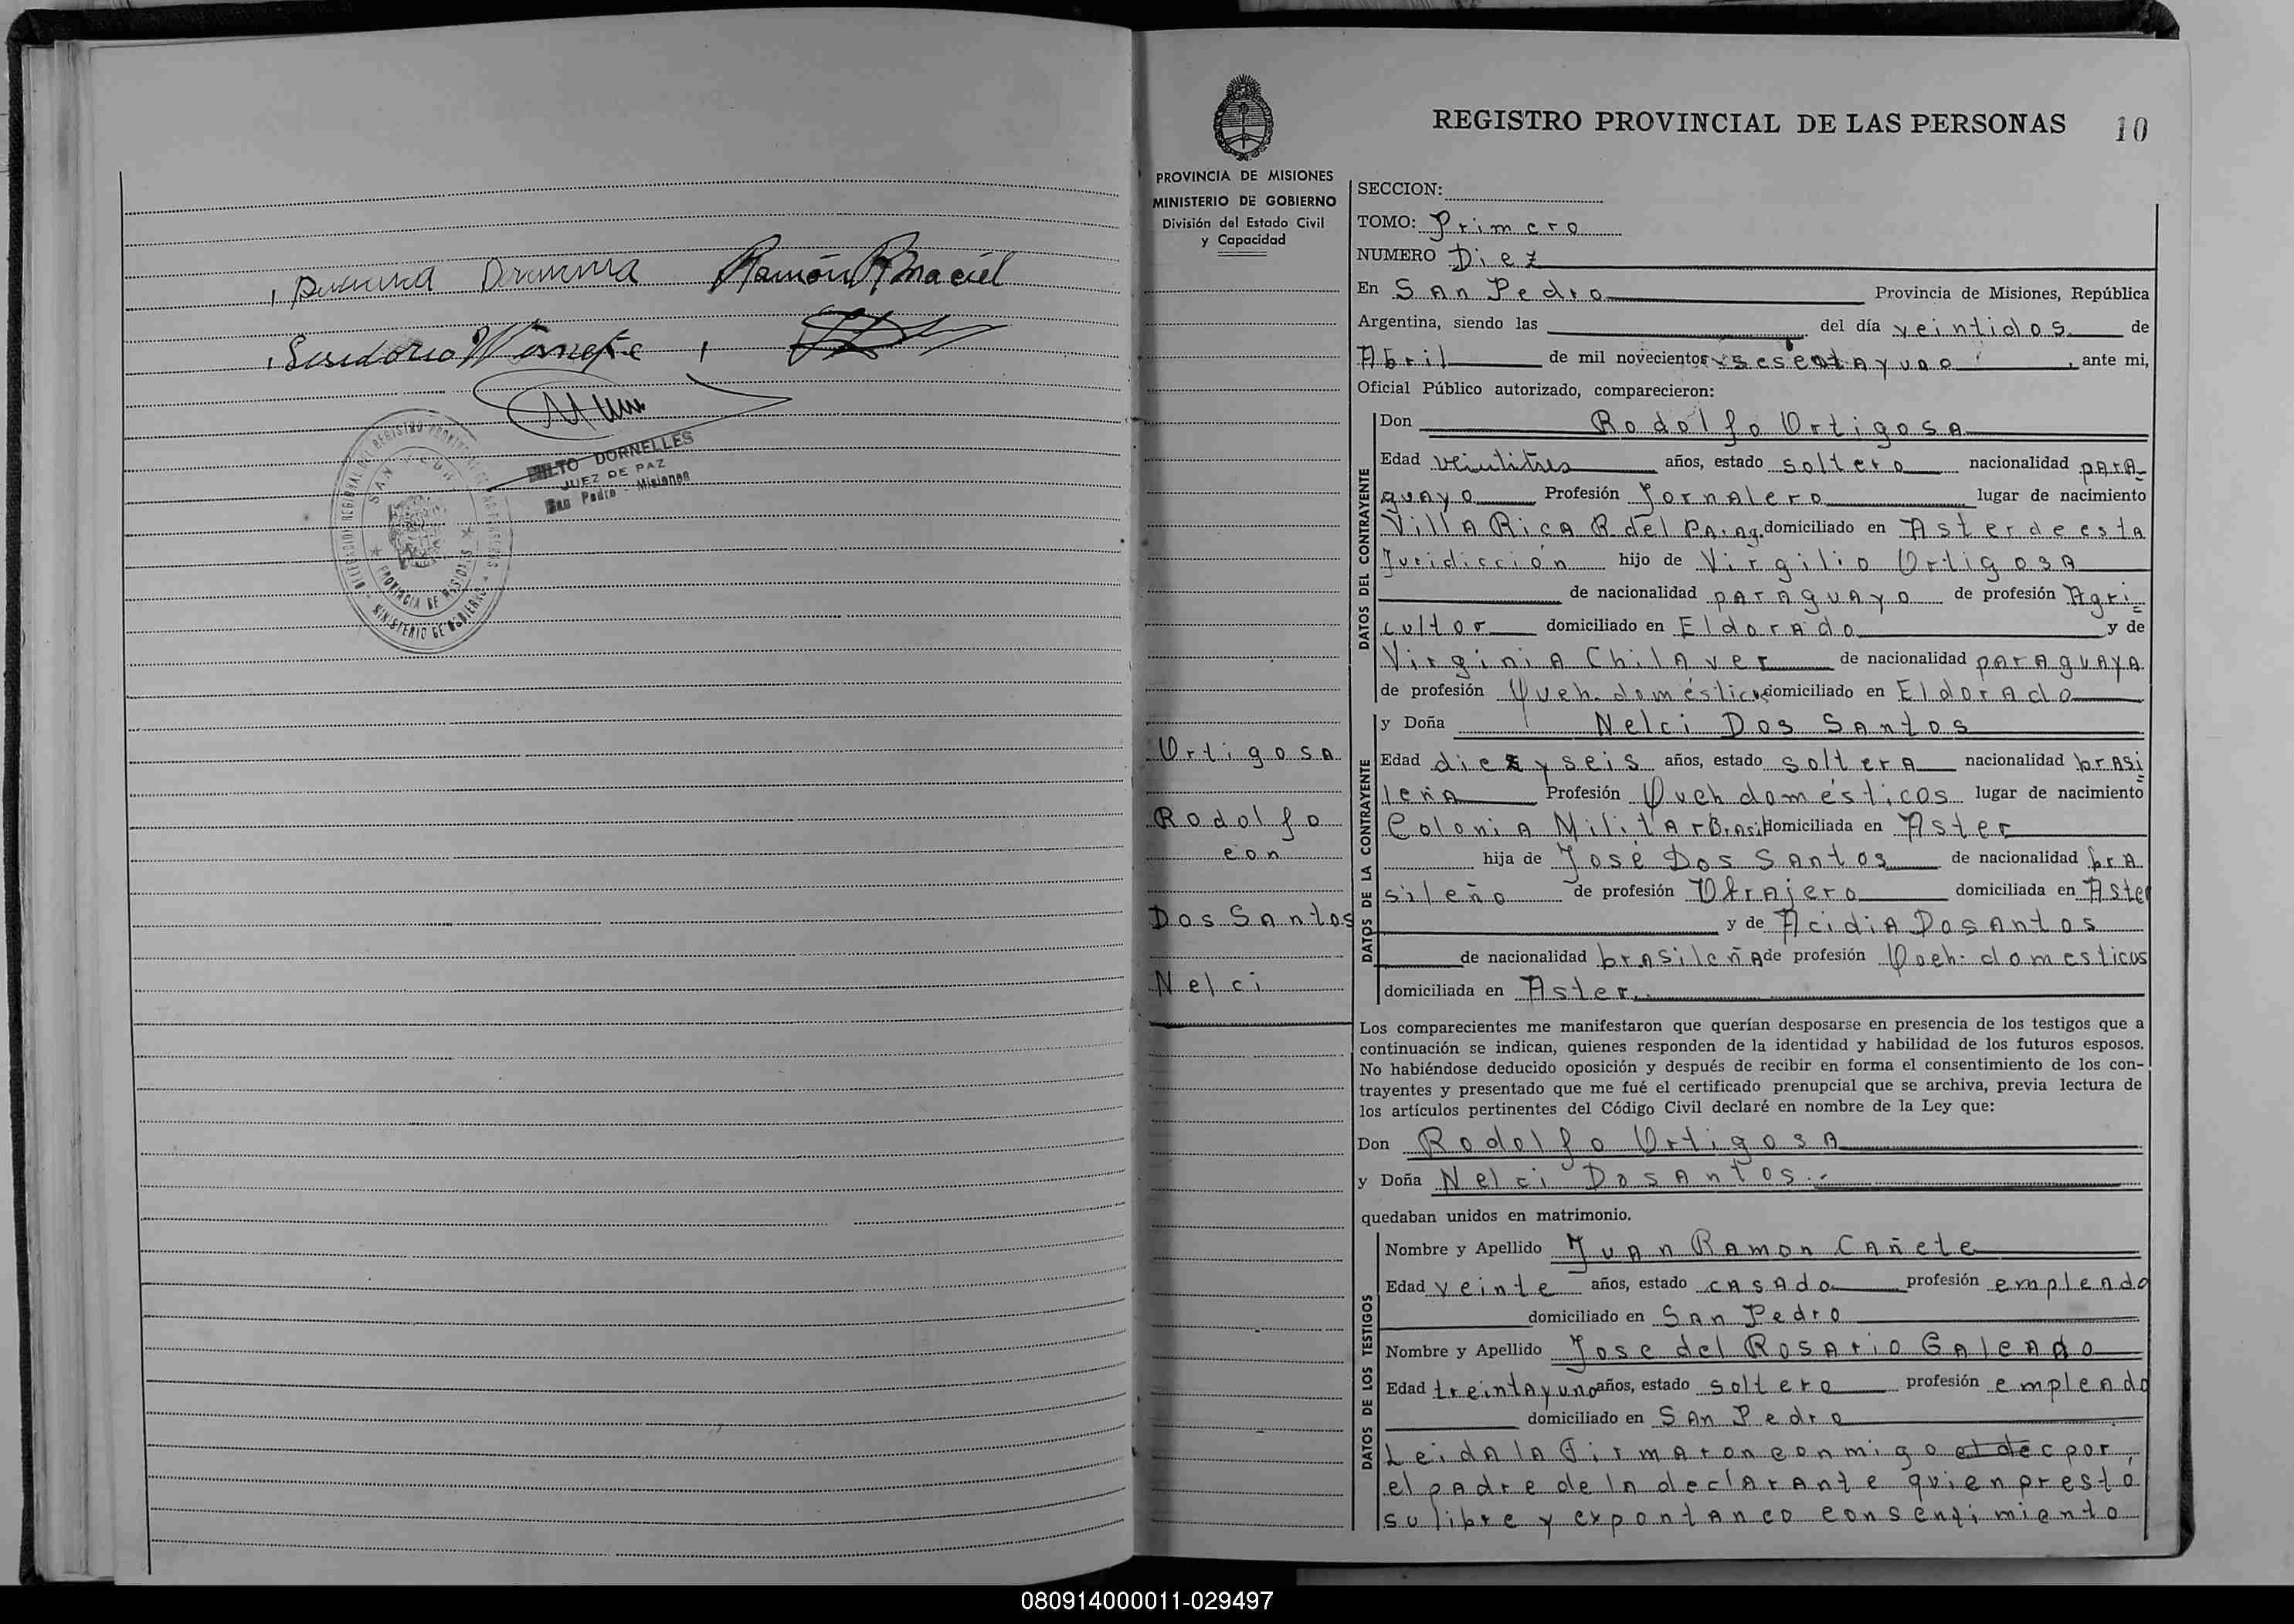 Ramón R Maciel
DORNELLES
JUEZ DE PAZ
San Pedro - Misiones
SAN PEDRO
PROVINCIA DE MISIONES
MINISTERIO DE GOBIERNO
PROVINCIA DE MISIONES
MINISTERIO DE GOBIERNO
División del Estado Civil
y Capacidad
Ortigosa
Rodolfo
con
Dos Santos
Nelci
REGISTRO PROVINCIAL DE LAS PERSONAS 10
SECCION:
TOMO: Primero
NUMERO Diez
En San Pedro Provincia de Misiones, República
Argentina, siendo las del día veintidos de
Abril de mil novecientos sesentayuno, ante mi,
Oficial Público autorizado, comparecieron:
DATOS DEL CONTRAYENTE
Don Rodolfo Ortigosa
Edad veintitres años, estado soltero nacionalidad para-
guayo Profesión Jornalero lugar de nacimiento
Villa Rica R. del Parag. domiciliado en Aster de esta
Juridicción hijo de Virgilio Ortigosa
de nacionalidad paraguayo de profesión Agri=
cultor domiciliado en Eldorado y de
Virginia Chilaver de nacionalidad paraguaya
de profesión Queh. domésticos domiciliado en Eldorado
DATOS DE LA CONTRAYENTE
y Doña Nelci Dos Santos
Edad diezyseis años, estado soltera nacionalidad brasi=
leña Profesión Queh domésticos lugar de nacimiento
Colonia Militar Brasil domiciliada en Aster
hija de José Dos Santos de nacionalidad bra
sileño de profesión Obrajero domiciliada en Aster
y de Acidia Dosantos
de nacionalidad brasileña de profesión Queh. domesticos
domiciliada en Aster.
Los comparecientes me manifestaron que querían desposarse en presencia de los testigos que a
continuación se indican, quienes responden de la identidad y habilidad de los futuros esposos.
No habiéndose deducido oposición y después de recibir en forma el consentimiento de los con-
trayentes y presentado que me fué el certificado prenupcial que se archiva, previa lectura de
los artículos pertinentes del Código Civil declaré en nombre de la Ley que:
Don Rodolfo Ortigosa
y Doña Nelci Dosantos.-
quedaban unidos en matrimonio.
DATOS DE LOS TESTIGOS
Nombre y Apellido Juan Ramon Cañete
Edad veinte años, estado casado profesión empleado
domiciliado en San Pedro
Nombre y Apellido Jose del Rosario Galeano
Edad treintayuno años, estado soltero profesión empleado
domiciliado en San Pedro
Leida la firmaron conmigo el dec por
el padre de la declarante quien prestó
su libre y expontaneo consentimiento
080914000011-029497